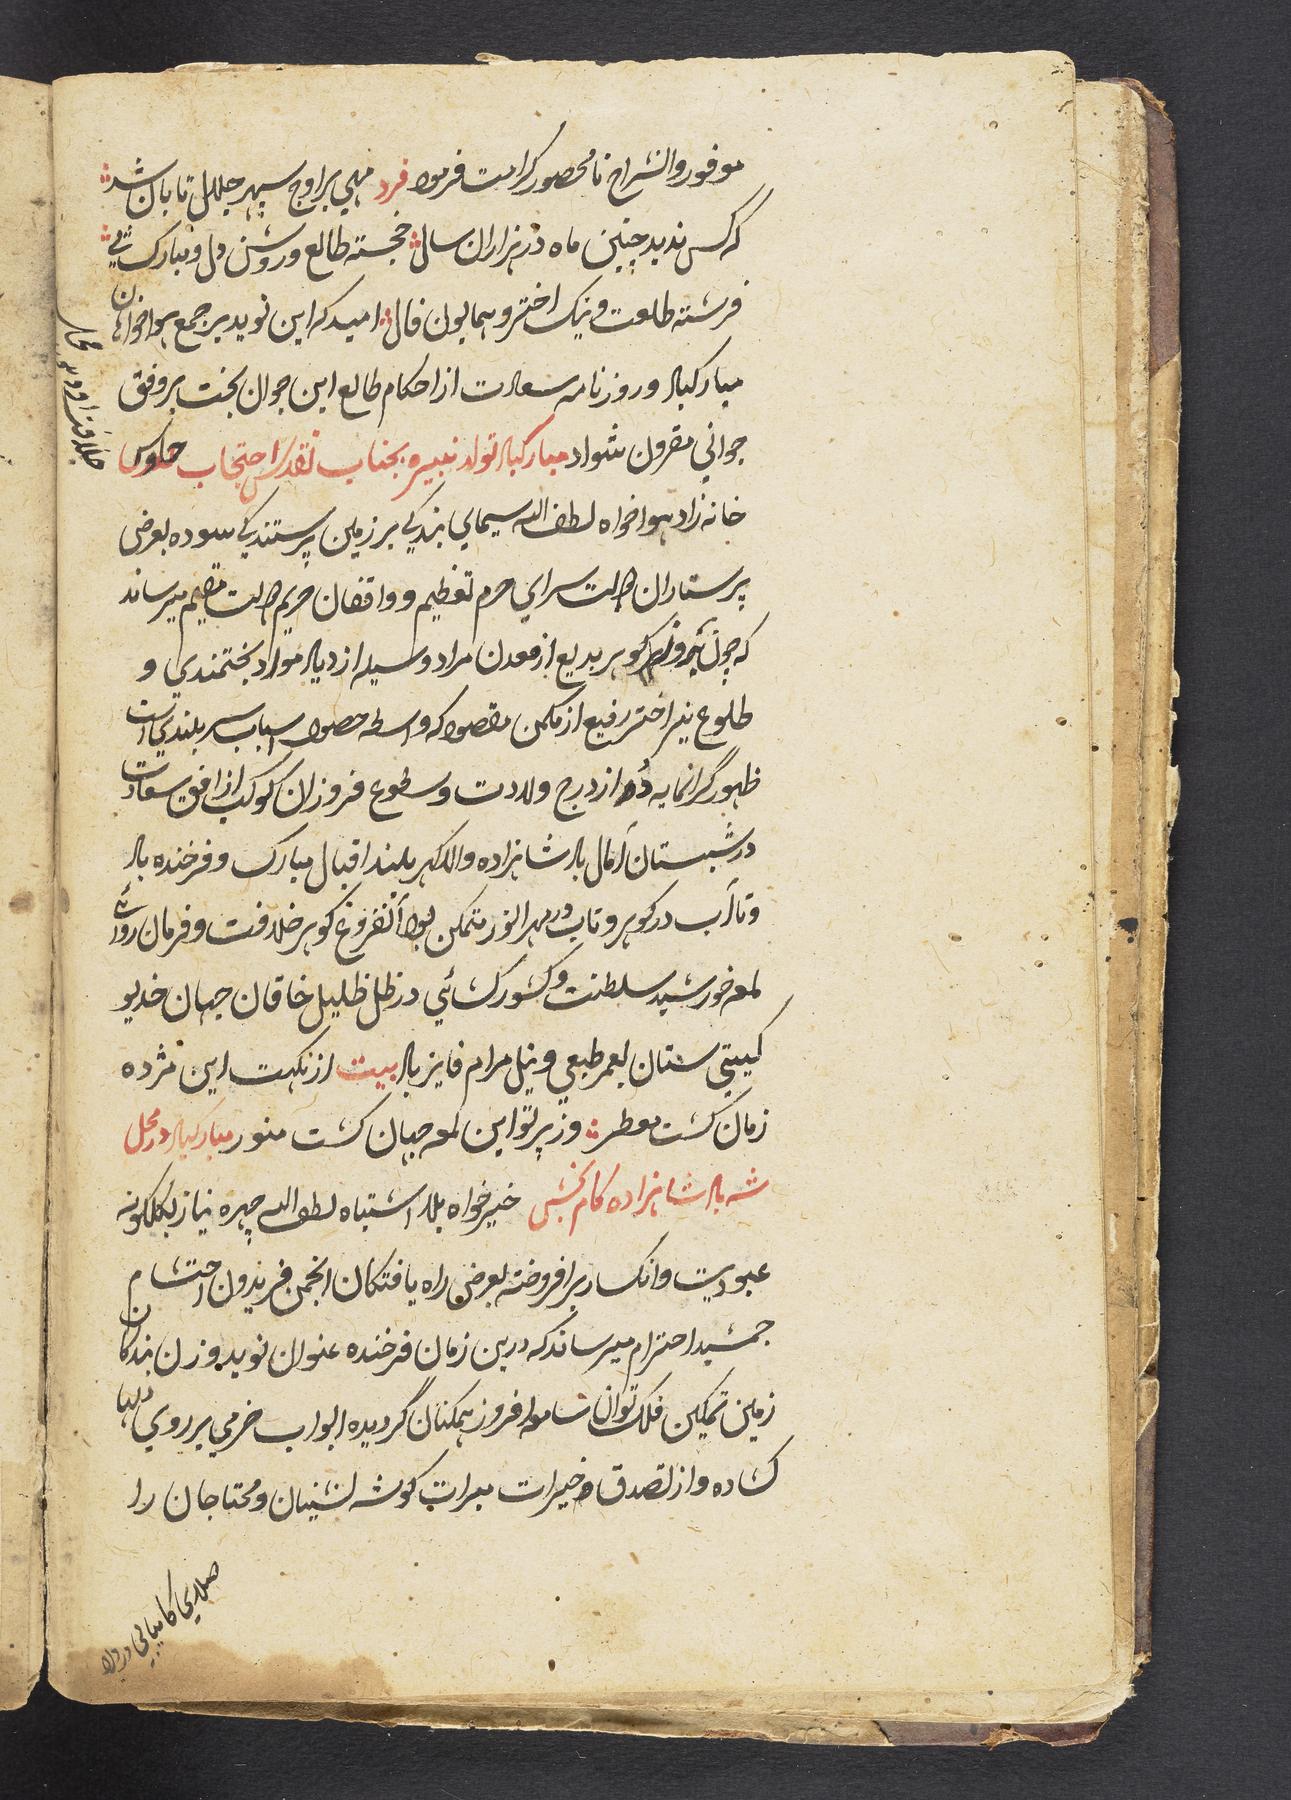 موفور وانشراح نامحصور کرامت فرمود فرد مهی بر اوج سپهر جلال تابان شد
که کس ندید چنین ماه در هزاران سال خجسته طالع و روشن دل و مبارک پی
فرشته طلعت و نیک اختر و همایون فال امید که این نوید بر جمع هواخواهان
مبارکباد و روزنامه سعادت از احکام طالع این جوان بخت بر وفق
جوانی مقرون شواد مبارکباد تولد نبیره بجناب تقدس احتجاب
خانه زاد هواخواه لطف الله سیمای بندگی بر زمین پرستندگی سوده بعرض
پرستاران دولت سرای حرم تعظیم و واقفان حریم دولت مقیم میرساند
که چون گوهر بدیع از معدن مراد وسیله ازدیاد مواد بختمندی و
طلوع نیر اختر رفیع از مکمن مقصود که واسطه حصول اسباب سربلندی است
ظهور گرانمایه در از درج ولادت و سطوع فروزان کوکب از افق سعادت
در شبستان آمال بادشاهزاده والاگهر بلند اقبال مبارک و فرخنده باد
و تا آب در گوهر و تاب در مهر انور متمکن بود آن فروغ گوهر خلافت و فرمان روائی
لمعه خورشید سلطنت و کشورکشائی در ظل ظلیل خاقان جهان خدیو
گیتی ستان بعمر طبعی و نیل مرام فایز باد بیت از نکهت این مژده
زمان گشت معطر وز پرتو این لمعه جهان گشت منور مبارکباد در محل
شه بادشاهزاده کام بخش خیرخواه بلا اشتباه لطف الله چهره نیاز بگلگونه
عبودیت و انکسار برافروخته بعرض راه یافتگان انجمن فریدون احتشام
جمشید احترام میرساند که درین زمان فرخنده عنوان نوید وزن بندگان
زمین تمکین فلک توان سامعه افروز همگنان گردیده ابواب خرمی بر روی دلها
کشاده و از تصدق و خیرات مبرات گوشه نشینان و محتاجان را
صلای کامیابی در داد